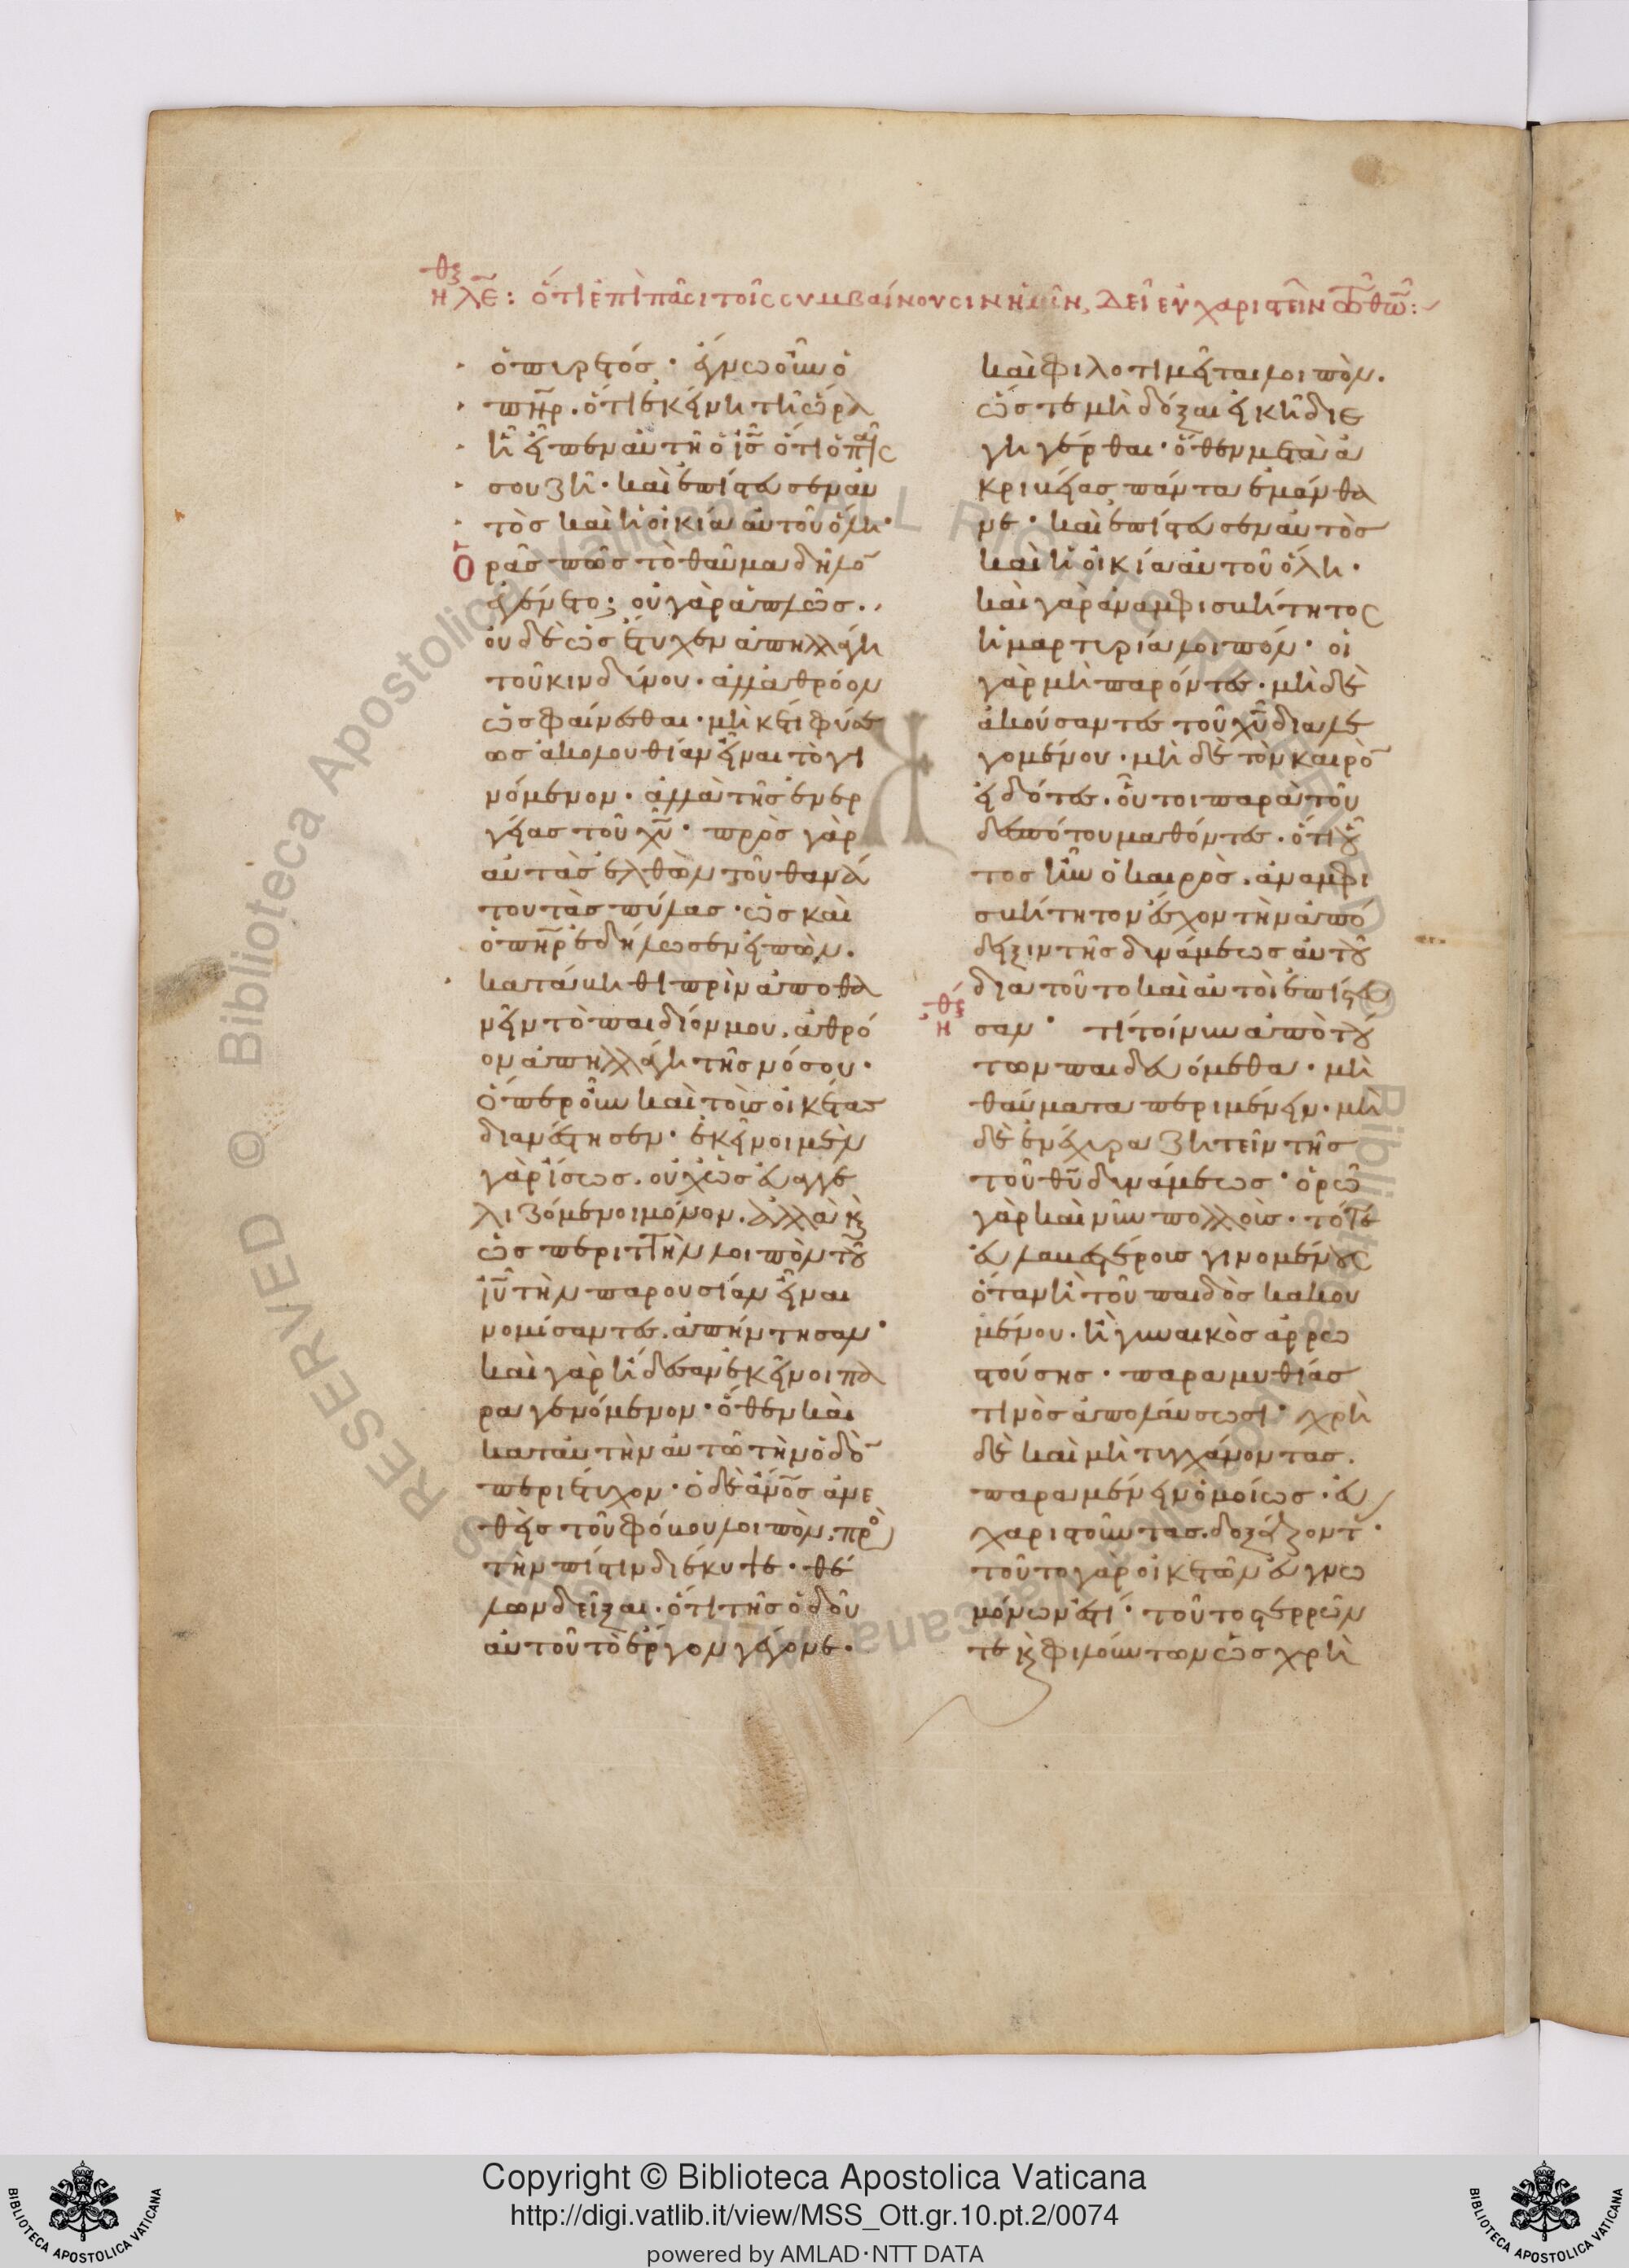 ἠθ λε: ὅτι ἐπὶ πᾶσι τοῖς συμβαίνουσιν ἡμῖν, δεῖ εὐχαριστεῖν τῶ θῶ:
ὁ πυρετός· ἔγνω οὖν ὁ
πῆρ. ὅτι ἐκείνη τῆ ὥρα
ἧ εἶπεν αὐτῆ ὁ ις ὅτι ὁ παῖς
σου ζῆ· καὶ ἐπίστευσεν αὐ
τὸς καὶ ἡ οἰκία αὐτοῦ ὅλη·
Ὁρᾶς πῶς τὸ θαῦμα δῆλον
ἐγένετο; οὐ γὰρ ἁπλῶς.
οὐδὲ ὡς ἔτυχεν ἀπηλλάγη
τοῦ κινδύνου· ἀλλ' ἀθρόον
ὡς φαίνεσθαι· μὴ κατὰ φύσε
ως ἀκολουθίαν εἶναι τὸ γι
νόμενον· ἀλλὰ τῆς ἐνερ
γείας τοῦ χυ· πρὸς γὰρ
αὐτὰς ἐλθὼν τοῦ θανά
του τὰς πύλας· ὡς καὶ
ὁ πηρ ἐδήλωσεν εἰπὼν.
κατάβηθι πρὶν ἀποθα
νεῖν τὸ παιδίον μου. ἀθρό
ον ἀπηλλάγη τῆς νόσου·
ὅπερ οὖν καὶ τοὺς οἰκέτας
διανέστησεν· ἐκεῖνοι μὲν
γὰρ ἴσως. οὐχ ὡς εὐαγγε
λιζόμενοι μόνον. ἀλλὰ κ
ὡς περιττὴν λοιπὸν τοῦ
ιυ τὴν παρουσίαν εἶναι
νομίσαντες. ἀπήντησαν·
καὶ γὰρ ἤδεσαν ἐκεῖνοι πα
ραγενόμενον· ὅθεν καὶ
κατ' αὐτὴν αὐτῶ τὴν ὁδὸν
περιέτυχον· ὁ δὲ ἀνος ἀνε
θεὶς τοῦ φόβου λοιπὸν. πρὸς
τὴν πίστιν διέκυψε· θέ
λων δεῖξαι. ὅτι τῆς ὁδοῦ
αὐτοῦ τὸ ἔργον γέγονε·
καὶ φιλοτιμεῖται λοιπὸν.
ὥστε μὴ δόξαι εἰκῆ διε
γηγέρθαι· ὅθεν μετὰ ἀ
κριβείας πάντα ἐμάνθα
νε· καὶ ἐπίστευσεν αὐτὸς
καὶ ἡ οἰκία αὐτοῦ ὅλη·
καὶ γὰρ ἀναμφισβήτητος
ἡ μαρτυρία λοιπόν· οἱ
γὰρ μὴ παρόντες· μὴ δὲ
ἀκούσαντες τοῦ χυ διαλε
γομένου· μὴ δὲ τὸν καιρὸν
εἰδότες. οὗτοι παρὰ τοῦ
δεσπότου μαθόντες. ὅτι οὗ
τος ἦν ὁ καιρὸς. ἀναμφι
σβήτητον ἔσχον τὴν ἀπό
δειξιν τῆς δυνάμεως αὐτοῦ
διὰ τοῦτο καὶ αὐτοὶ ἐπίστευ
σαν· τί τοίνυν ἀπὸ τού
των παιδευόμεθα· μὴ
θαύματα περιμένειν· μὴ
δὲ ἐνέχυρα ζητεῖν τῆς
τοῦ θυ δυνάμεως· ὁρῶ
γὰρ καὶ νῦν πολλοὺς. τότε
εὐλαβεστέρους γινομένους
ὅταν ἢ τοῦ παιδὸς κακου
μένου. ἢ γυναικὸς ἀρρω
στούσης· παραμυθίας
τινὸς ἀπολαύσωσι· χρὴ
δὲ καὶ μὴ τυγχάνοντας.
παραμένειν ὁμοίως· εὐ
χαριστοῦντας. δοξάζοντ·
τοῦτο γὰρ οἰκετῶν εὐγνω
μόνων ἐστί· τοῦτο στερρῶν
τε κ φιλούντων ὡς χρὴ
Copyright © Biblioteca Apostolica Vaticana
http://digi.vatlib.it/view/MSS_Ott.gr.10.pt.2/0074
powered by AMLAD·NTT DATA